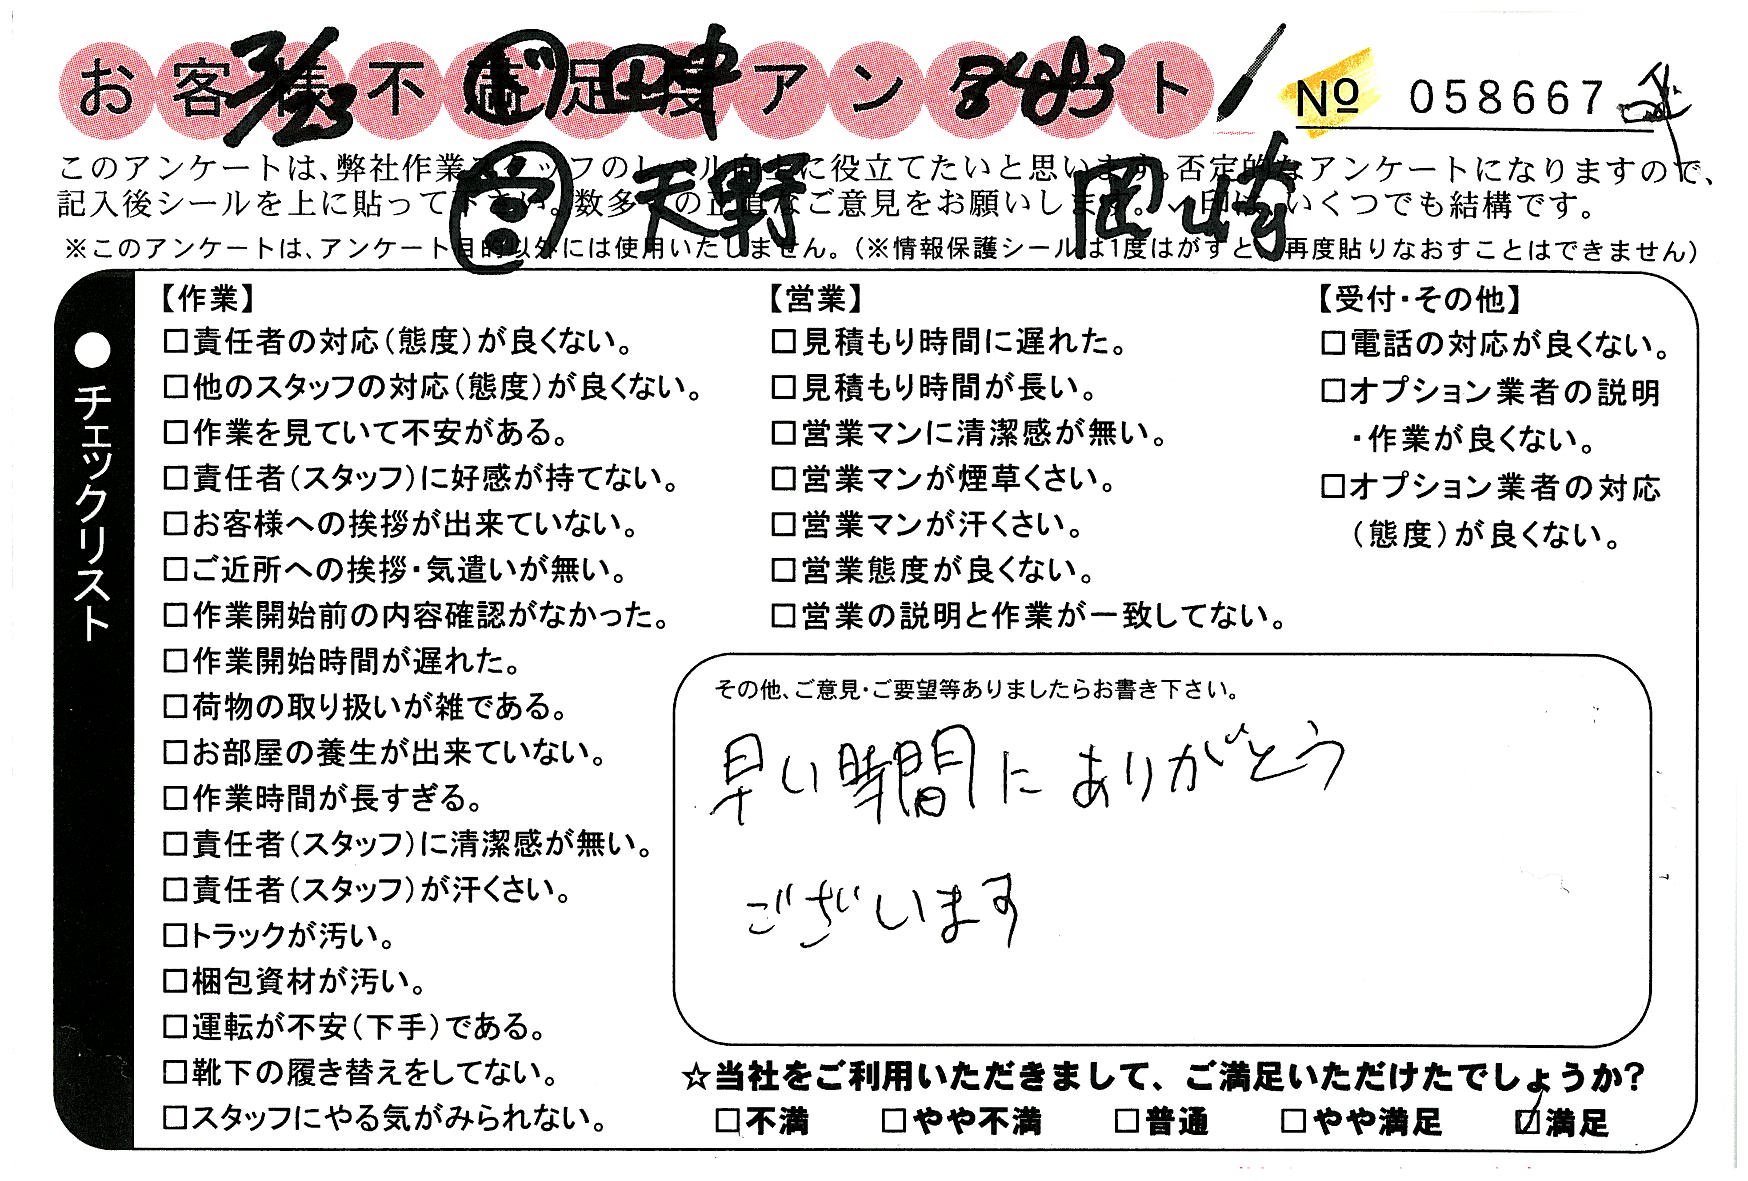 お客様不満足度アンケート No 058667
3/23 田中 8483
天野 岡崎
このアンケートは、弊社作業スタッフのレベル向上に役立てたいと思います。否定的なアンケートになりますので、
記入後シールを上に貼って下さい。数多くの正直なご意見をお願いします。✓印は、いくつでも結構です。
※このアンケートは、アンケート目的以外には使用いたしません。（※情報保護シールは1度はがすと、再度貼りなおすことはできません）
●チェックリスト
【作業】
□責任者の対応（態度）が良くない。
□他のスタッフの対応（態度）が良くない。
□作業を見ていて不安がある。
□責任者（スタッフ）に好感が持てない。
□お客様への挨拶が出来ていない。
□ご近所への挨拶・気遣いが無い。
□作業開始前の内容確認がなかった。
□作業開始時間が遅れた。
□荷物の取り扱いが雑である。
□お部屋の養生が出来ていない。
□作業時間が長すぎる。
□責任者（スタッフ）に清潔感が無い。
□責任者（スタッフ）が汗くさい。
□トラックが汚い。
□梱包資材が汚い。
□運転が不安（下手）である。
□靴下の履き替えをしてない。
□スタッフにやる気がみられない。
【営業】
□見積もり時間に遅れた。
□見積もり時間が長い。
□営業マンに清潔感が無い。
□営業マンが煙草くさい。
□営業マンが汗くさい。
□営業態度が良くない。
□営業の説明と作業が一致してない。
【受付・その他】
□電話の対応が良くない。
□オプション業者の説明
・作業が良くない。
□オプション業者の対応
（態度）が良くない。
その他、ご意見・ご要望等ありましたらお書き下さい。
早い時間にありがとう
ございます
☆当社をご利用いただきまして、ご満足いただけたでしょうか?
□不満 □やや不満 □普通 □やや満足 ☑満足